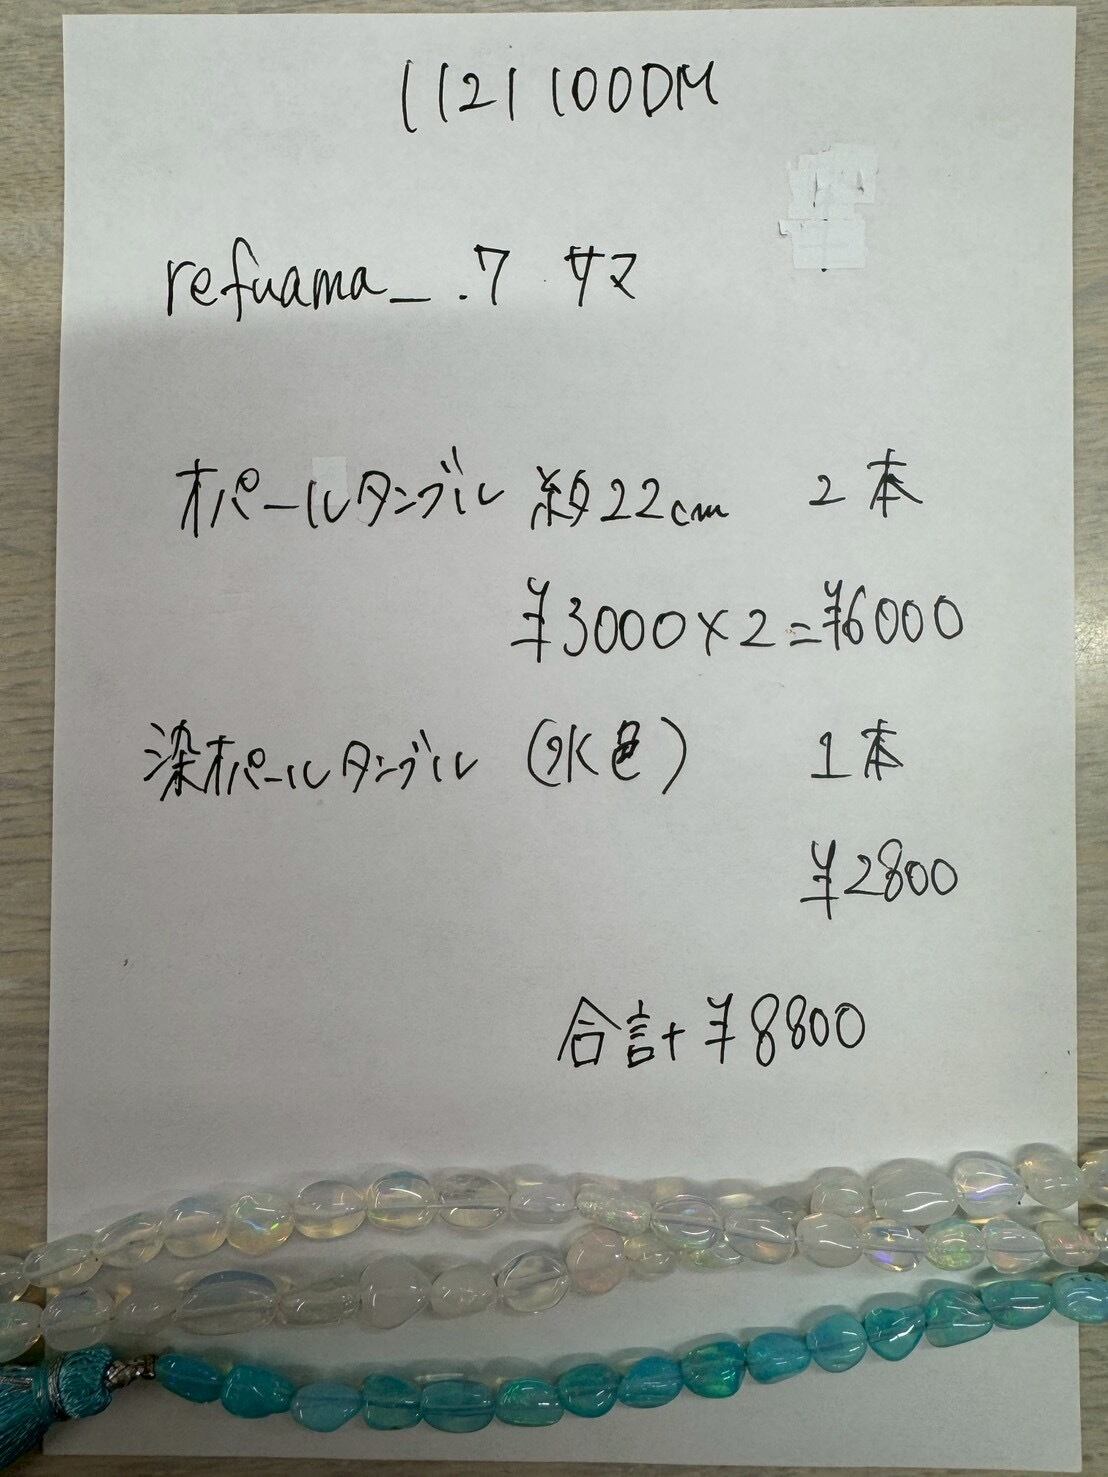 1121 100DM
refuama_.7 サマ
オパールタンブル 約22cm 2本
¥3000×2=¥6000
染オパールタンブル (水色) 1本
¥2800
合計 ¥8800